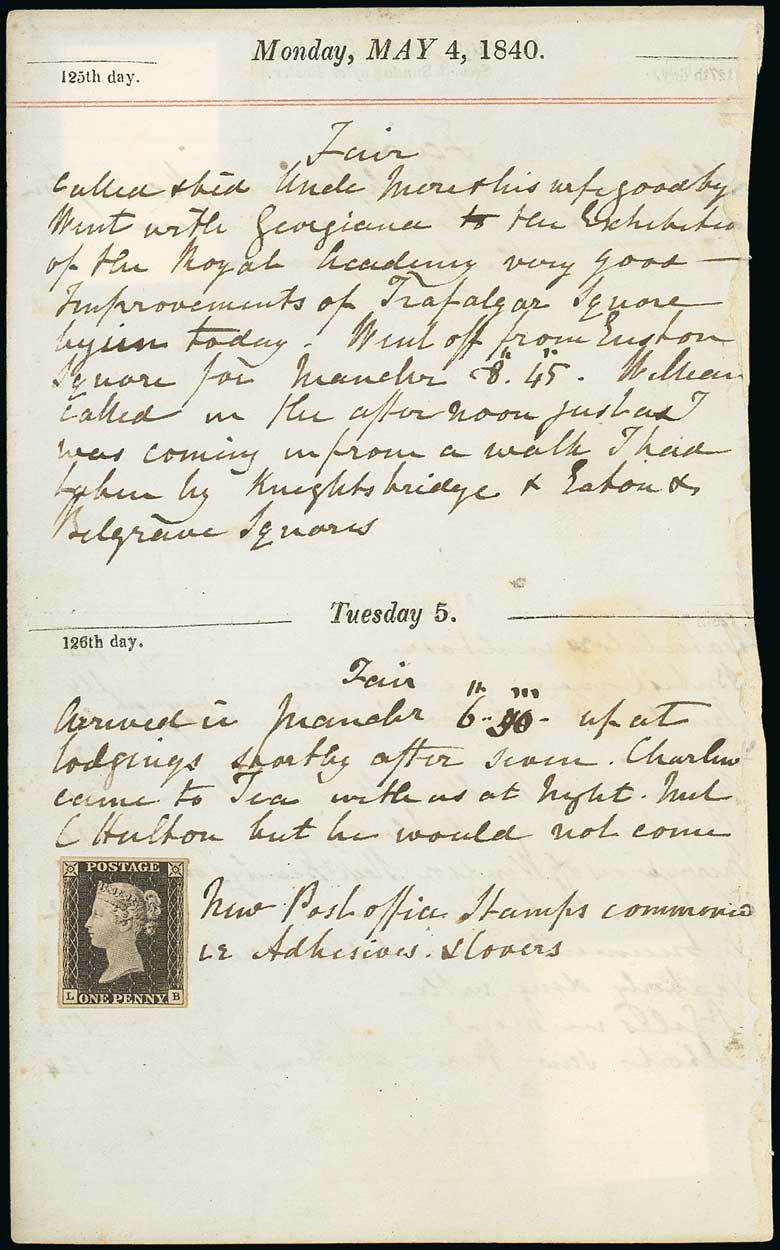 Monday, MAY 4, 1840.
125th day.
Fair
Called & bid Uncle More & his wife goodby
Went with Georgiana to the Exhibitio
of the Royal Academy very good —
Improvements of Trafalgar Square
begun today. Went off from Euston
Square for Manchr 8". 45". William
called in the afternoon just as I
was coming in from a walk I had
taken by Knightsbridge & Eaton &
Belgrave Squares
Tuesday 5.
126th day.
Fair
Arrived in Manchr 6. up at
lodgings shortly after seven. Charles
came to Tea with us at Night. Met
C Hulton but he would not come
New Post office Stamps commence
ie Adhesives. & Covers
POSTAGE
L ONE PENNY B